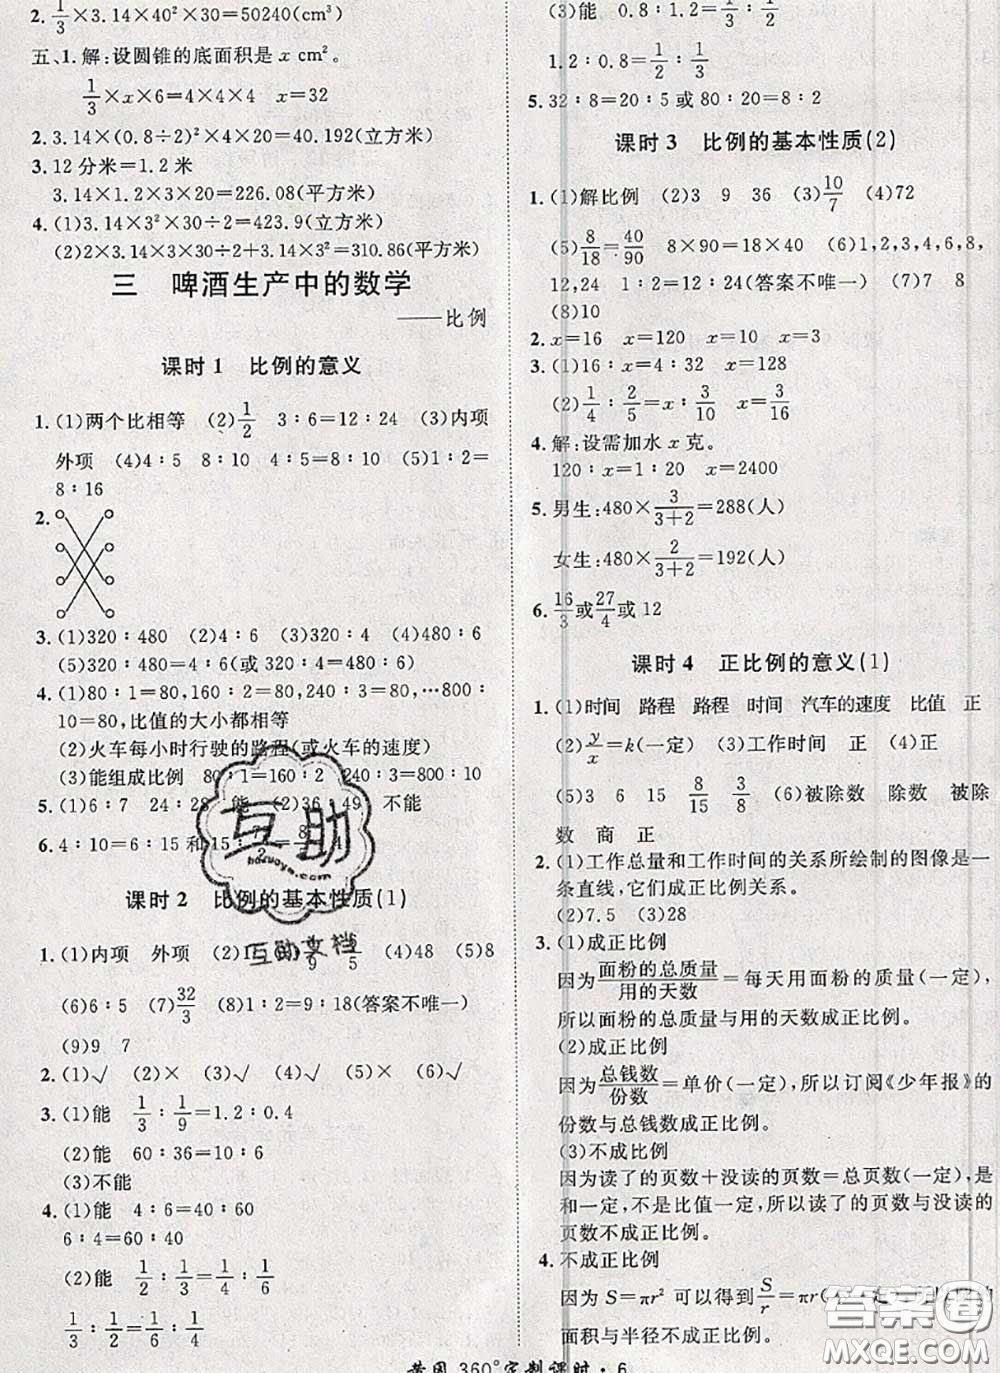 2. 1/3×3.14×40²×30=50240(cm³)
五、1.解:设圆锥的底面积是 x cm²。
1/3×x×6=4×4×4 x=32
2.3.14×(0.8÷2)²×4×20=40.192(立方米)
3.12分米=1.2米
3.14×1.2×3×20=226.08(平方米)
4.(1)3.14×3²×30÷2=423.9(立方米)
(2)2×3.14×3×30÷2+3.14×3²=310.86(平方米)
三 啤酒生产中的数学
——比例
课时1 比例的意义
1.(1)两个比相等 (2)1/2 3∶6=12∶24 (3)内项
外项 (4)4∶5 8∶10 4∶5=8∶10 (5)1∶2=
8∶16
2.
3.(1)320∶480 (2)4∶6 (3)320∶4 (4)480∶6
(5)320∶480=4∶6(或320∶4=480∶6)
4.(1)80∶1=80,160∶2=80,240∶3=80,…800∶
10=80,比值的大小都相等
(2)火车每小时行驶的路程(或火车的速度)
(3)能组成比例 80∶1=160∶2 240∶3=800∶10
5.(1)6∶7 24∶28 能 (2)36∶49 不能
6.4∶10=6∶15和
课时2 比例的基本性质(1)
1.(1)内项 外项 (4)48 (5)8
(6)6∶5 (7)32/3 (8)1∶2=9∶18(答案不唯一)
(9)9 7
2.(1)√ (2)× (3)√ (4)√ (5)× (6)×
3.(1)能 1/3∶1/9=1.2∶0.4
(2)能 60∶36=10∶6
(3)不能
4.(1)能 4∶6=40∶60
6∶4=60∶40
(2)能 1/2∶1/3=1/4∶1/6
1/3∶1/2=1/6∶1/4
(3)能 0.8∶1.2=1/3∶1/2
1.2∶0.8=1/2∶1/3
5.32∶8=20∶5或80∶20=8∶2
课时3 比例的基本性质(2)
1.(1)解比例 (2)3 9 36 (3)10/7 (4)72
(5)8/18=40/90 8×90=18×40 (6)1,2,3,4,6,8,
12,24 1∶2=3∶6(答案不唯一) (7)7 8
(8)10
2.x=16 x=120 x=10 x=7.5
3.(1)16∶x=4∶32 x=128
(2)1/4∶2/5=x∶3/10 x=3/16
4.解:设需加水x克。
120∶x=1∶20 x=2400
5.男生:480×3/3+2=288(人)
女生:480×2/3+2=192(人)
6.16/3或27/4或12
课时4 正比例的意义(1)
1.(1)时间 路程 路程 时间 汽车的速度 比值 正
(2)y/x=k(一定) (3)工作时间 正 (4)正
(5)3 6 15 8/15 3/8 (6)被除数 除数 被除
数 商 正
2.(1)工作总量和工作时间的关系所绘制的图像是一
条直线,它们成正比例关系。
(2)7.5 (3)28
3.(1)成正比例
因为面粉的总质量/用的天数=每天用面粉的质量(一定),
所以面粉的总质量与用的天数成正比例。
(2)成正比例
因为总钱数/份数=单价(一定),所以订阅《少年报》的
份数与总钱数成正比例。
(3)不成正比例
因为读了的页数+没读的页数=总页数(一定),是
和一定,不是比值一定,所以读了的页数与没读的
页数不成正比例。
4.不成正比例
因为S=πr²可以得到S/r=πr
面积与半径不成正比例。
黄冈360°定制课时·6
互助
hezuoye.com
互助文档
答案圈
MXQE.COM